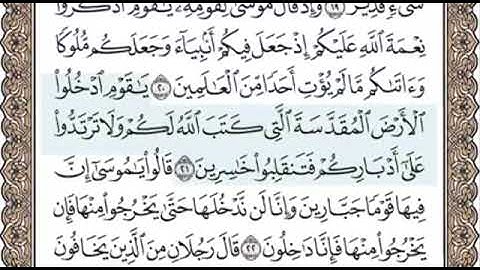 شَىْءٍ قَدِيرٌ ١٩ وَإِذْ قَالَ مُوسَىٰ لِقَوْمِهِۦ يَٰقَوْمِ ٱذْكُرُوا۟
نِعْمَةَ ٱللَّهِ عَلَيْكُمْ إِذْ جَعَلَ فِيكُمْ أَنۢبِيَآءَ وَجَعَلَكُم مُّلُوكًا
وَءَاتَىٰكُم مَّا لَمْ يُؤْتِ أَحَدًا مِّنَ ٱلْعَٰلَمِينَ ٢٠ يَٰقَوْمِ ٱدْخُلُوا۟
ٱلْأَرْضَ ٱلْمُقَدَّسَةَ ٱلَّتِى كَتَبَ ٱللَّهُ لَكُمْ وَلَا تَرْتَدُّوا۟
عَلَىٰٓ أَدْبَارِكُمْ فَتَنقَلِبُوا۟ خَٰسِرِينَ ٢١ قَالُوا۟ يَٰمُوسَىٰٓ إِنَّ
فِيهَا قَوْمًا جَبَّارِينَ وَإِنَّا لَن نَّدْخُلَهَا حَتَّىٰ يَخْرُجُوا۟ مِنْهَا فَإِن
يَخْرُجُوا۟ مِنْهَا فَإِنَّا دَٰخِلُونَ ٢٢ قَالَ رَجُلَانِ مِنَ ٱلَّذِينَ يَخَافُونَ